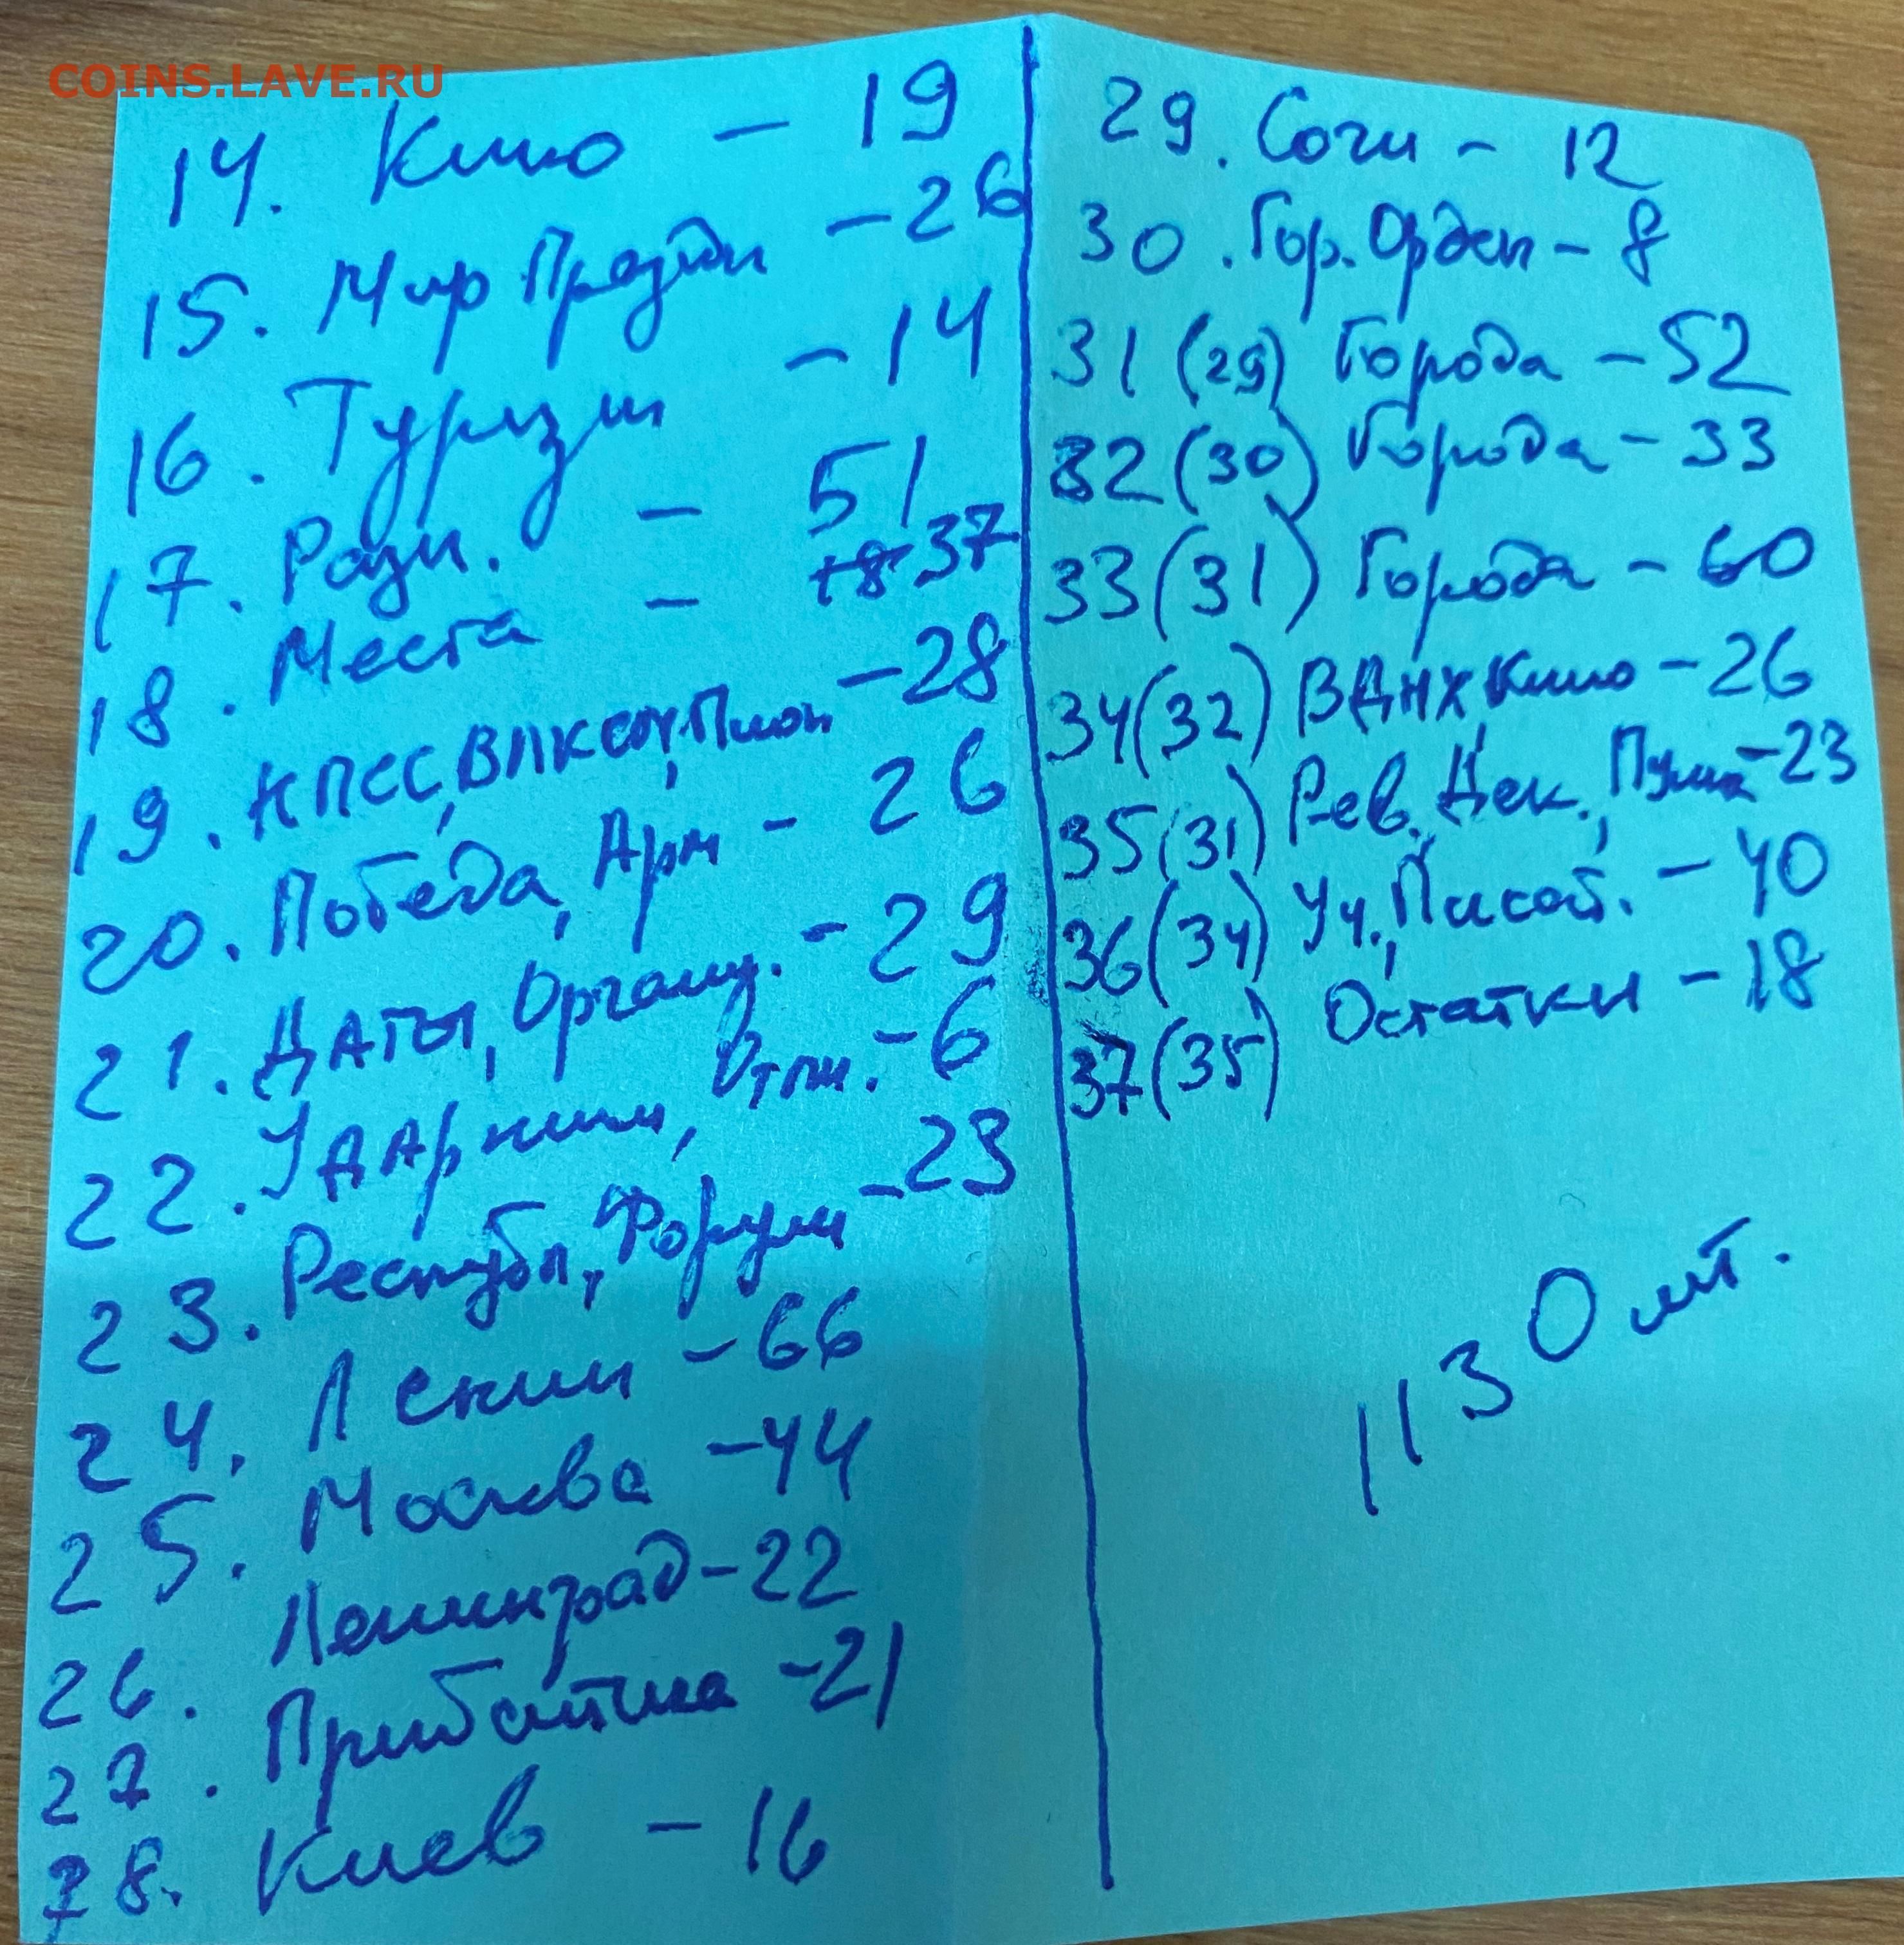 COINS.LAVE.RU
14. Кино - 19
15. Мир Празди - 26
16. Туризм - 14
17. Разн. - 51
18. Места - 37
19. КПСС, ВЛКСМ, Пион - 28
20. Победа, Арм - 26
21. Даты, Организ. - 29
22. Ударник, Отл. - 6
23. Республ, Форум - 23
24. Ленин - 66
25. Москва - 44
26. Ленинград - 22
27. Прибалтика - 21
28. Киев - 16
29. Сочи - 12
30. Гор. Орден - 8
31 (29) Города - 52
32 (30) Города - 33
33 (31) Города - 60
34 (32) ВДНХ, Кино - 26
35 (31) Рев., Дек., - 23
36 (34) Уч., Писат. - 40
37 (35) Остатки - 18
1130 шт.